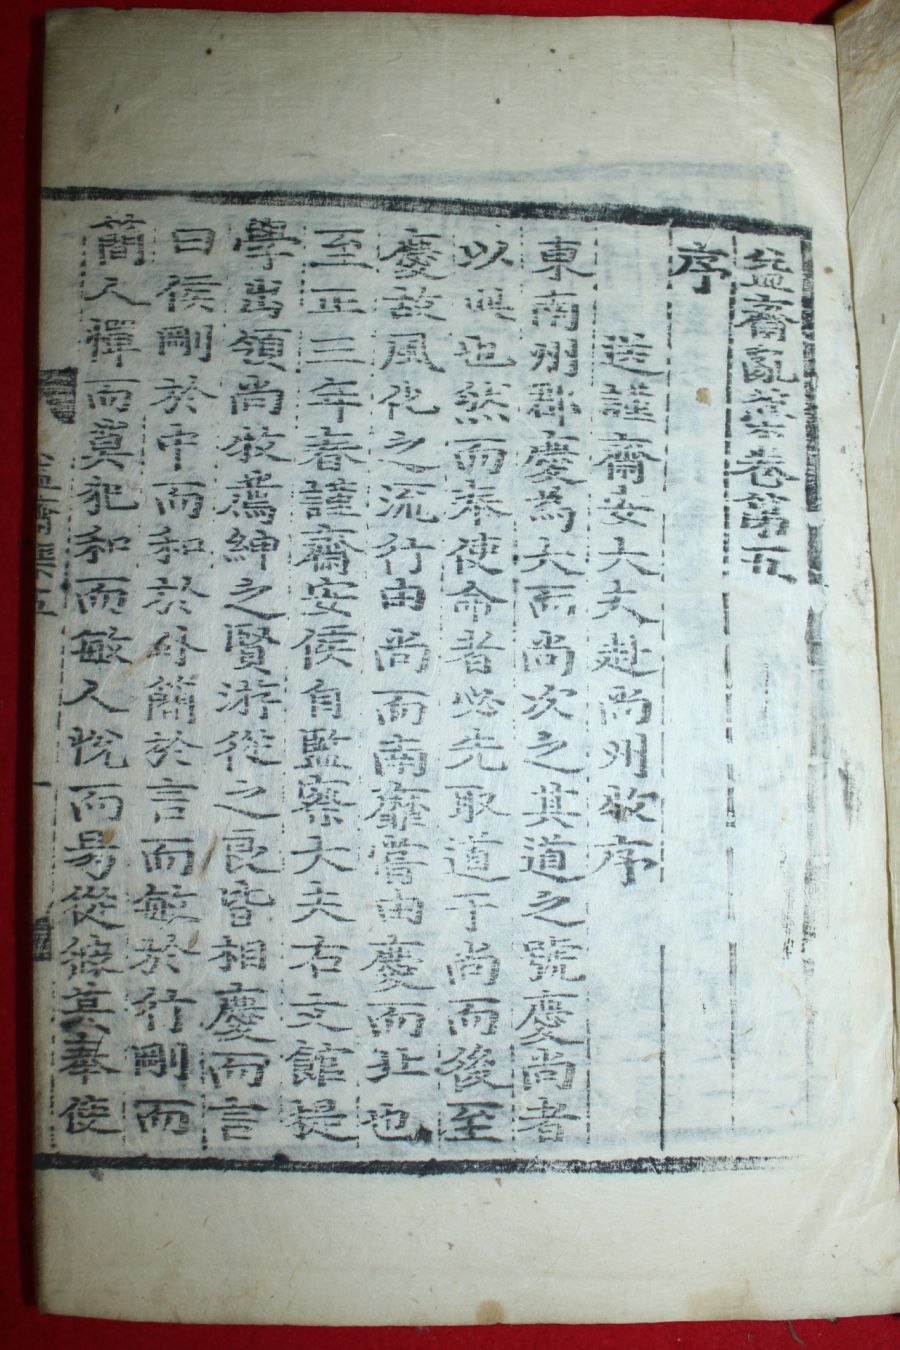 益齋亂藁卷第五
序
送謹齋安大夫赴尚州牧序
東南州郡慶爲大而尚次之其道之號慶尚者
以此也然而奉使命者必先取道于尚而後至
慶故風化之流行由尚而南靡嘗由慶而北也
至正三年春謹齋安侯自監察大夫右文館提
學出領尚牧薦紳之賢游從之良皆相慶而言
曰侯剛於中而和於外簡於言而敏於行剛而
簡人憚而莫犯和而敏人悅而易從雖其奉使
益齋集五
一